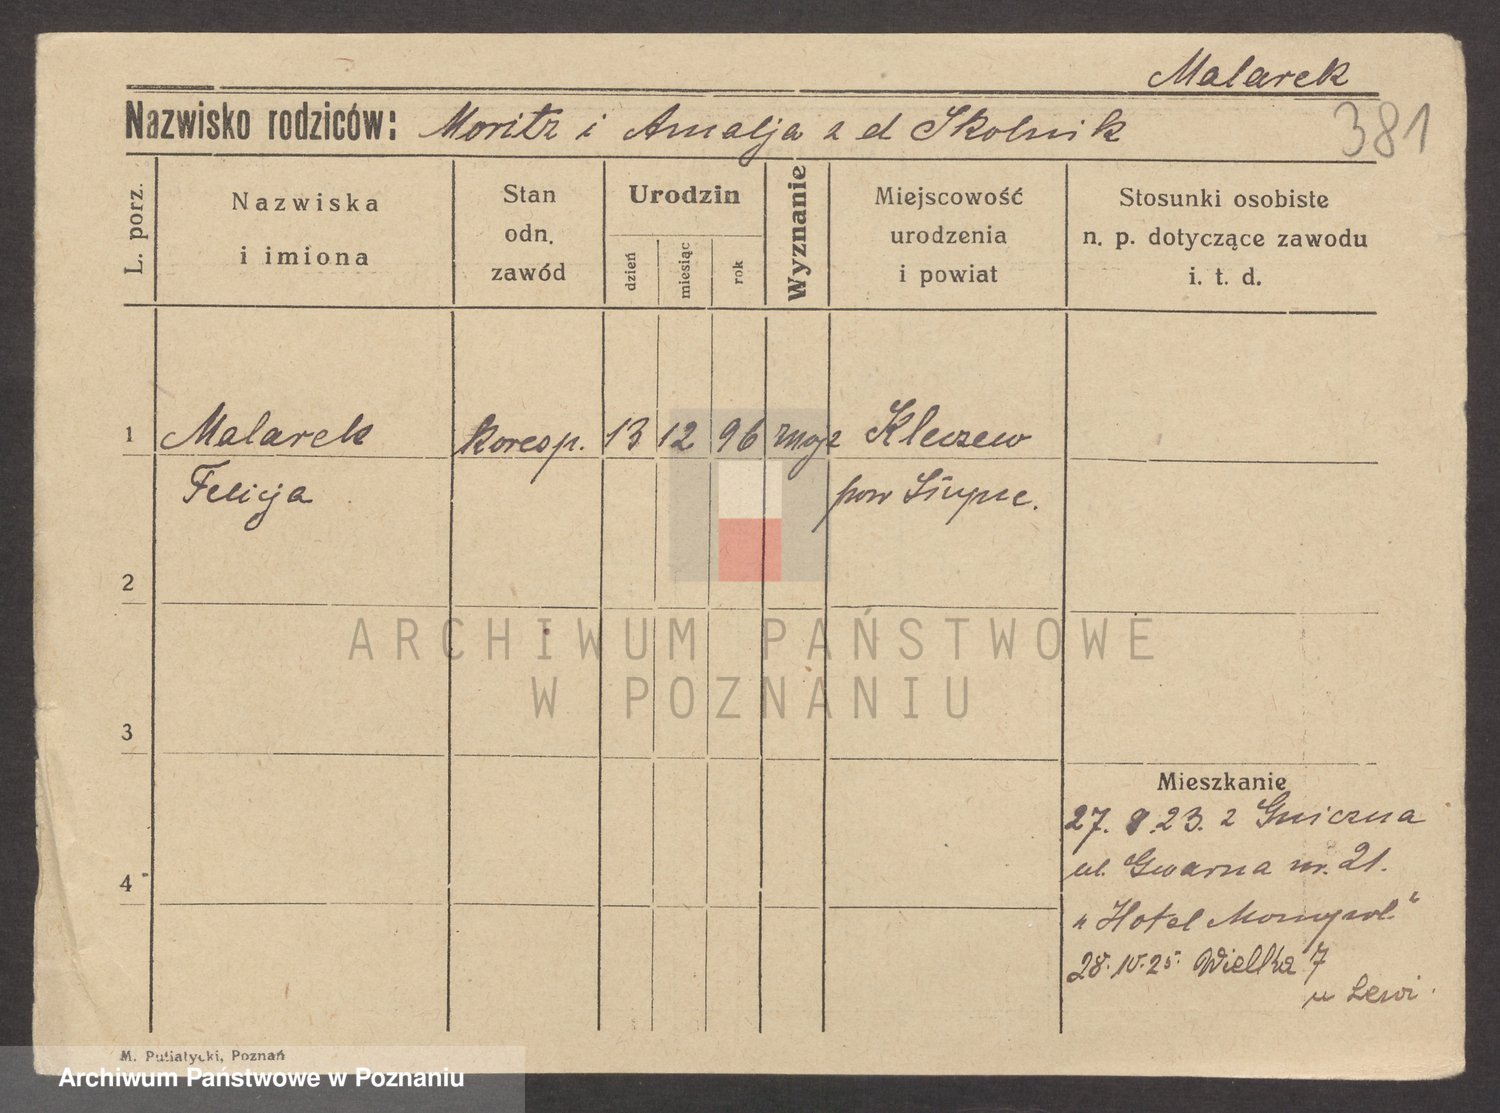 Malarek
381
Nazwisko rodziców: Moritz i Amalja z d Skolnik
L. porz.
Nazwiska
i imiona
Stan
odn.
zawód
Urodzin
dzień
miesiąc
rok
Wyznanie
Miejscowość
urodzenia
i powiat
Stosunki osobiste
n. p. dotyczące zawodu
i. t. d.
1 Malarek koresp. 13 12 96 mojż Kleczew
Felicja pow Słupce.
2
ARCHIWUM PAŃSTWOWE
W POZNANIU
3
Mieszkanie
27. 8.23. z Gniezna
4
ul. Gwarna nr. 21.
"Hotel Monopol"
28. IV. 25. Wielka 7
u Lewi.
M. Putiatycki, Poznań
Archiwum Państwowe w Poznaniu